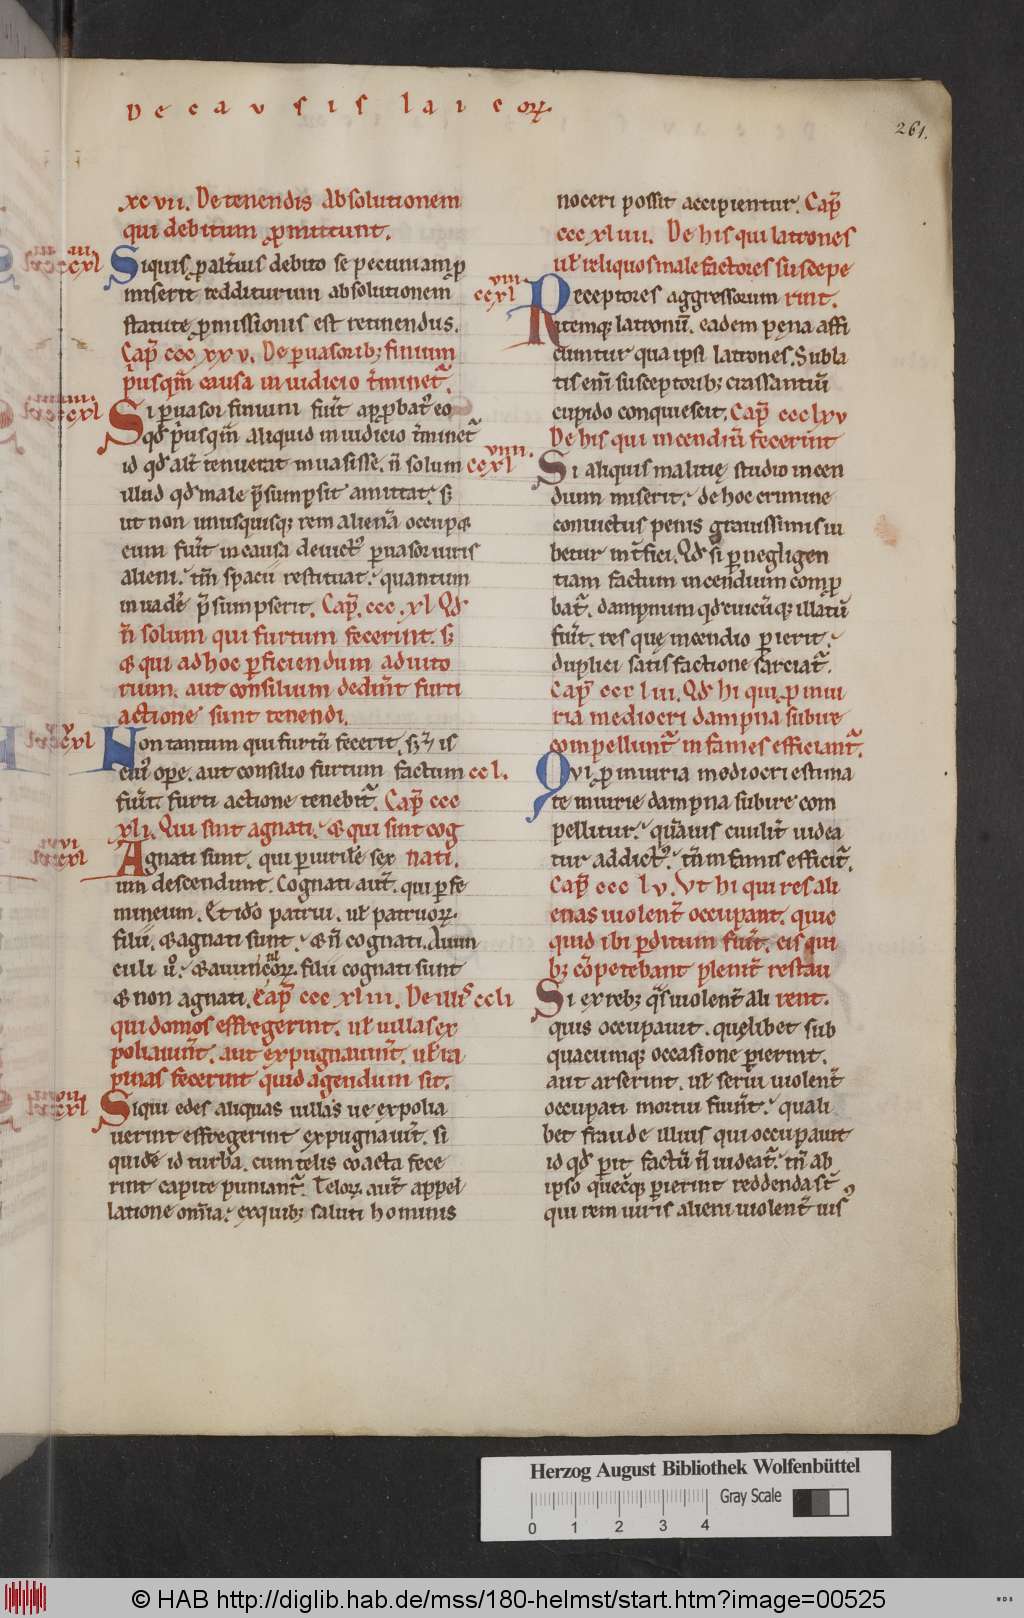 De causis laicoꝝ.
261.
xcvii. De tenendis absolutionem
qui debitum ꝓmittunt.
Siquis ꝓ alt̄ius debito se pecuniam ꝓ
miserit redditurum absolutionem
statute ꝓmissionis est retinendus.
Cap̄ ccc xxv. De ꝑuasoribꝫ finium
p̄usqm̄ causa in iudicio t̄minet̄.
Si ꝑuasor finium fuīt apꝓbat᷒ eo
qd̄ p̄usqm̄ aliquid in iudicio t̄minet̄
id qd̄ alt̄ tenuerat inuasisse. n̄ solum
illud qd̄ male p̄sumpsit amittat. sꝫ
ut non unusquisqꝫ rem alienā occupꝫ
cum fuīt in causa deuict᷒ ꝑuasor iuris
alieni. tm̄ spacii restituat. quantum
inuadē p̄sumpserit. Cap̄. ccc. xl Qd̄
n̄ solum qui furtum fecerint. sꝫ
& qui ad hoc ꝑficiendum adiuto
rium. aut consilium dedunt̄ furti
actione sunt tenendi.
Non tantum qui furtū fecerit, sꝫ & is
cui᷒ ope. aut consilio furtum factum
fuīt. furti actione tenebit̄. Cap̄ ccc
xli. Qui sint agnati. & qui sint cog
nati.
Agnati sunt. qui ꝑ uirile sex
um descendunt. Cognati aut̄. qui ꝑ fe
mineum. Et ido patrui. uł patruoꝝ.
filii. & agnati sunt. & n̄ cognati. Auun
culi u᷒o. & auunculoꝝ filii cognati sunt
& non agnati. Cap̄ ccc xliii. De illis
qui domos effregerint. uł uillas ex
poliauint̄. aut expugnauint̄. uł ra
pinas fecerint quid agendum sit.
Siqui edes aliquas uillas ue expolia
uerint effregerint expugnauīt. si
quidē id turba. cum telis coacta fece
rint capite puniant̄. Teloꝝ aut̄ appel
latione om̄ia. exquibꝫ saluti hominis
noceri possit accipientur. Cap̄
ccc xliiii. De his qui latrones
uł reliquos male factores suscepe
rint.
Receptores aggressorum
itemqꝫ latronū. eadem pęna affi
ciuntur qua ipsi latrones. Subla
tis em̄ susceptoribꝫ crassantiū
cupido conquiescit. Cap̄ ccc lxv
De his qui incendiū fecerint
Si aliquis malitię studio incen
dium miserit. de hoc crimine
conuictus penis grauissimis iu
betur int̄fici. Qd̄ si ꝑ negligen
tiam factum incendium comꝓ
bat̄. dampnum qd̄ cuicūqꝫ illatū
fuīt. res quę incendio ꝑierit.
duplici satisfactione sarciat̄.
Cap̄ ccc liii. Qd̄ hi qui ꝓ iniu
ria mediocri dampna subire
compellunt̄ infames efficiant̄.
Qui ꝓ iniuria mediocri estima
te iniurie dampna subire com
pellitur. quāuis ciuilit̄ uidea
tur addict᷒. tn̄ infamis efficit̄.
Cap̄ ccc lv. Vt hi qui res ali
enas uiolent̄ occupant. quic
quid ibi ꝑditum fuīt. eis qui
bꝫ cōpetebant plenit̄ restau
rent.
Si ex rebꝫ q̄s uiolent̄ ali
quis occupauit. quęlibet sub
quacumqꝫ occasione ꝑierint.
aut arserint. uł serui uiolent̄
occupati mortui fuint̄. quali
bet fraude illius qui occupauit
id qd̄ ꝑit factū n̄ uideat̄. tn̄ ab
ipso quęcq̄ꝫ ꝑierint reddenda st̄.
qui rem iuris alieni uiolent̄ uis᷒
ccxl
viii.
ccxl
viiii.
ccl.
ccli
Herzog August Bibliothek Wolfenbüttel
Gray Scale
0 1 2 3 4
© HAB http://diglib.hab.de/mss/180-helmst/start.htm?image=00525